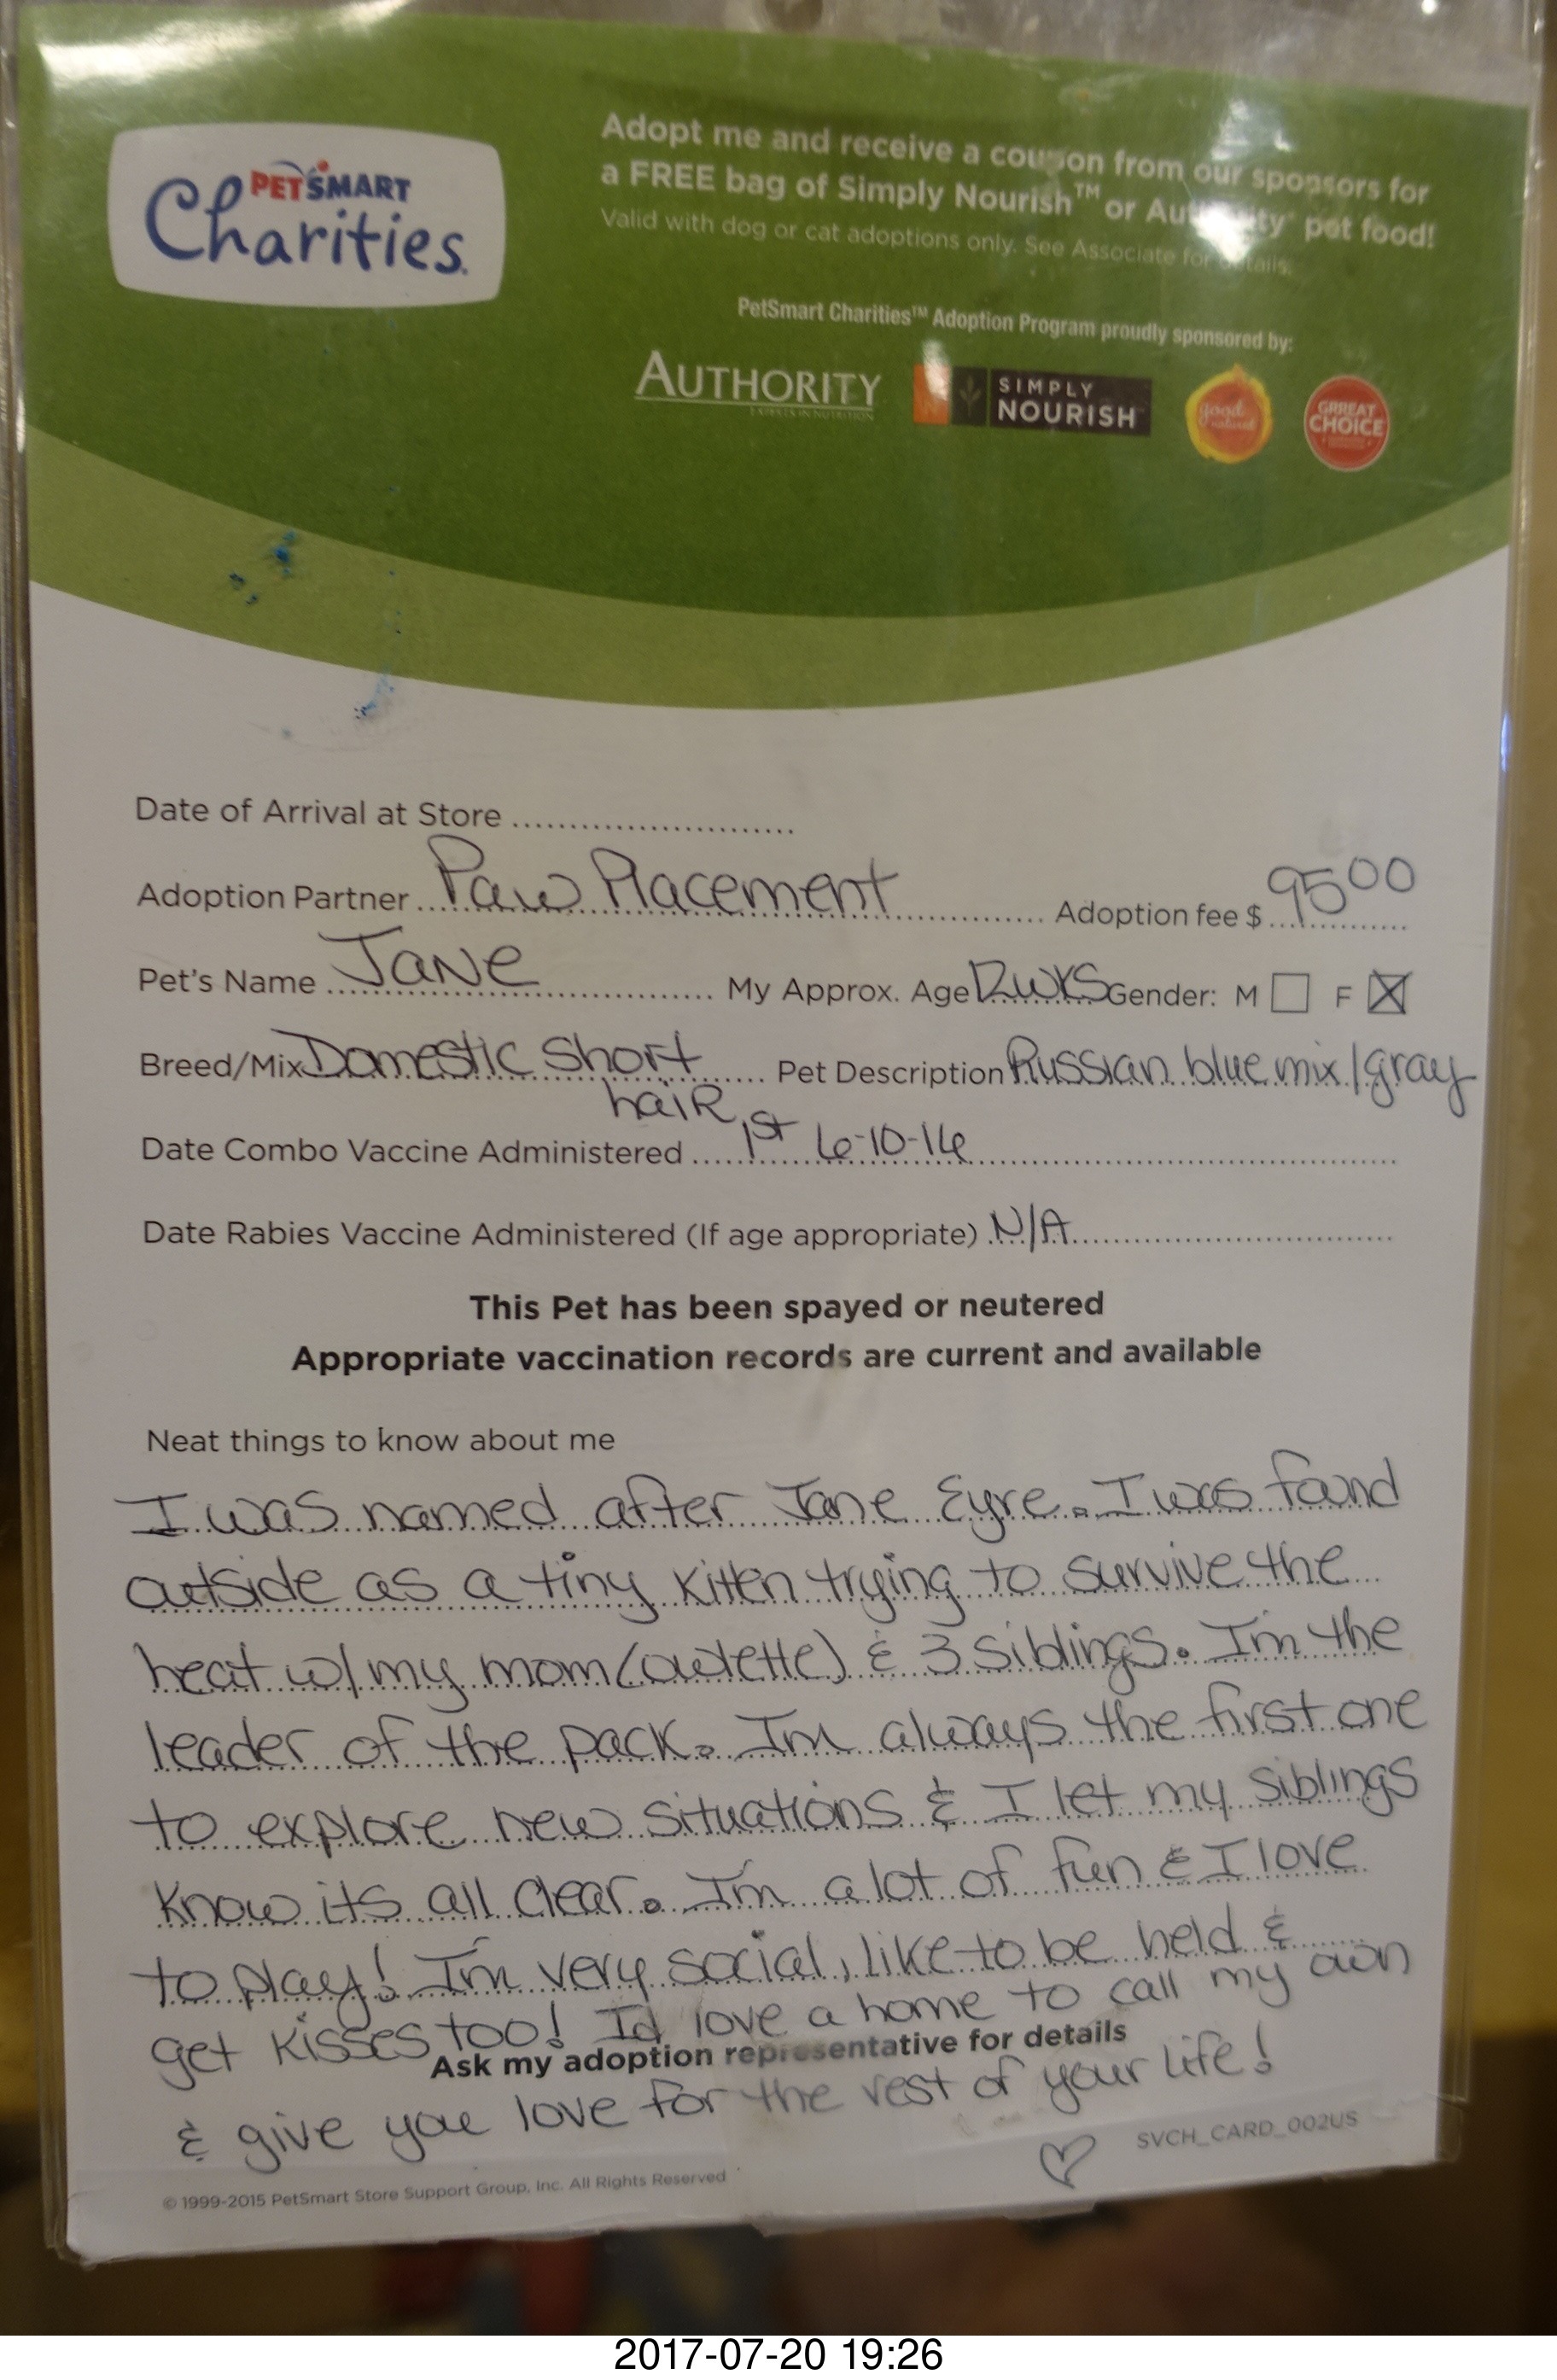 PETSMART
Charities
Adopt me and receive a coupon from our sponsors for
a FREE bag of Simply Nourish™ or Authority pet food!
Valid with dog or cat adoptions only. See Associate for details.
PetSmart Charities™ Adoption Program proudly sponsored by:
AUTHORITY
EXPERTS IN NUTRITION
SIMPLY
NOURISH
good
natured
GRREAT
CHOICE
Date of Arrival at Store
Adoption Partner Paw Placement Adoption fee $ 95 00
Pet's Name Jane My Approx. Age 12wks Gender: M F
Breed/Mix Domestic Short Pet Description Russian blue mix/gray
hair
Date Combo Vaccine Administered 1st 6-10-16
Date Rabies Vaccine Administered (If age appropriate) N/A
This Pet has been spayed or neutered
Appropriate vaccination records are current and available
Neat things to know about me
I was named after Jane Eyre. I was found
outside as a tiny kitten trying to survive the
heat w/ my mom (owlette) & 3 siblings. I'm the
leader of the pack. I'm always the first one
to explore new situations & I let my siblings
know its all clear. I'm a lot of fun & I love
to play! I'm very social, like to be held &
get kisses too! Id love a home to call my own
Ask my adoption representative for details
& give you love for the rest of your life!
SVCH_CARD_002US
© 1999-2015 PetSmart Store Support Group, Inc. All Rights Reserved
2017-07-20 19:26